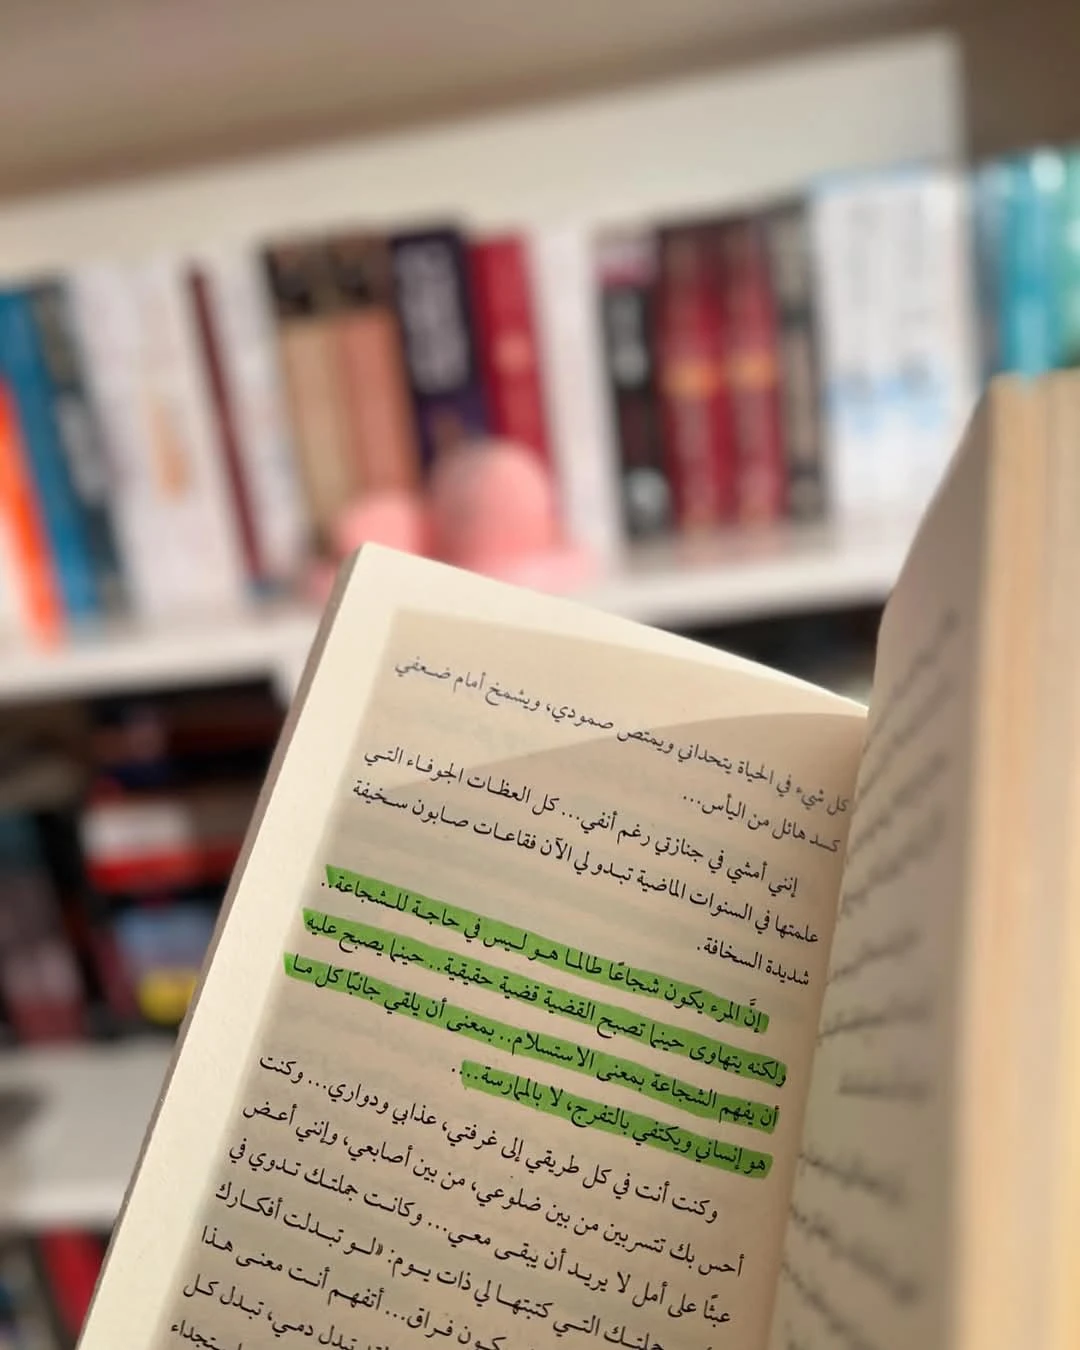 كل شيء في الحياة يتحداني ويمتص صمودي، ويشمخ أمام ضعفي
كسد هائل من اليأس...
إنني أمشي في جنازتي رغم أنفي... كل العظات الجوفاء التي
علمتها في السنوات الماضية تبدو لي الآن فقاعات صابون سخيفة
شديدة السخافة.
إنَّ المرء يكون شجاعًا طالما هو ليس في حاجة للشجاعة..
ولكنه يتهاوى حينما تصبح القضية قضية حقيقية.. حينما يصبح عليه
أن يفهم الشجاعة بمعنى الاستسلام.. بمعنى أن يلقي جانبًا كل ما
هو إنساني ويكتفي بالتفرج، لا بالممارسة....
وكنت أنت في كل طريقي إلى غرفتي، عذابي ودواري... وكنت
أحس بك تتسربين من بين ضلوعي، من بين أصابعي، وإنني أعض
عبثًا على أمل لا يريد أن يبقى معي... وكانت جملتك تدوي في
جملتك التي كتبتها لي ذات يوم: «لو تبدلت أفكارك
يكون فراق... أتفهم أنت معنى هذا
تبدل دمي، تبدل كل